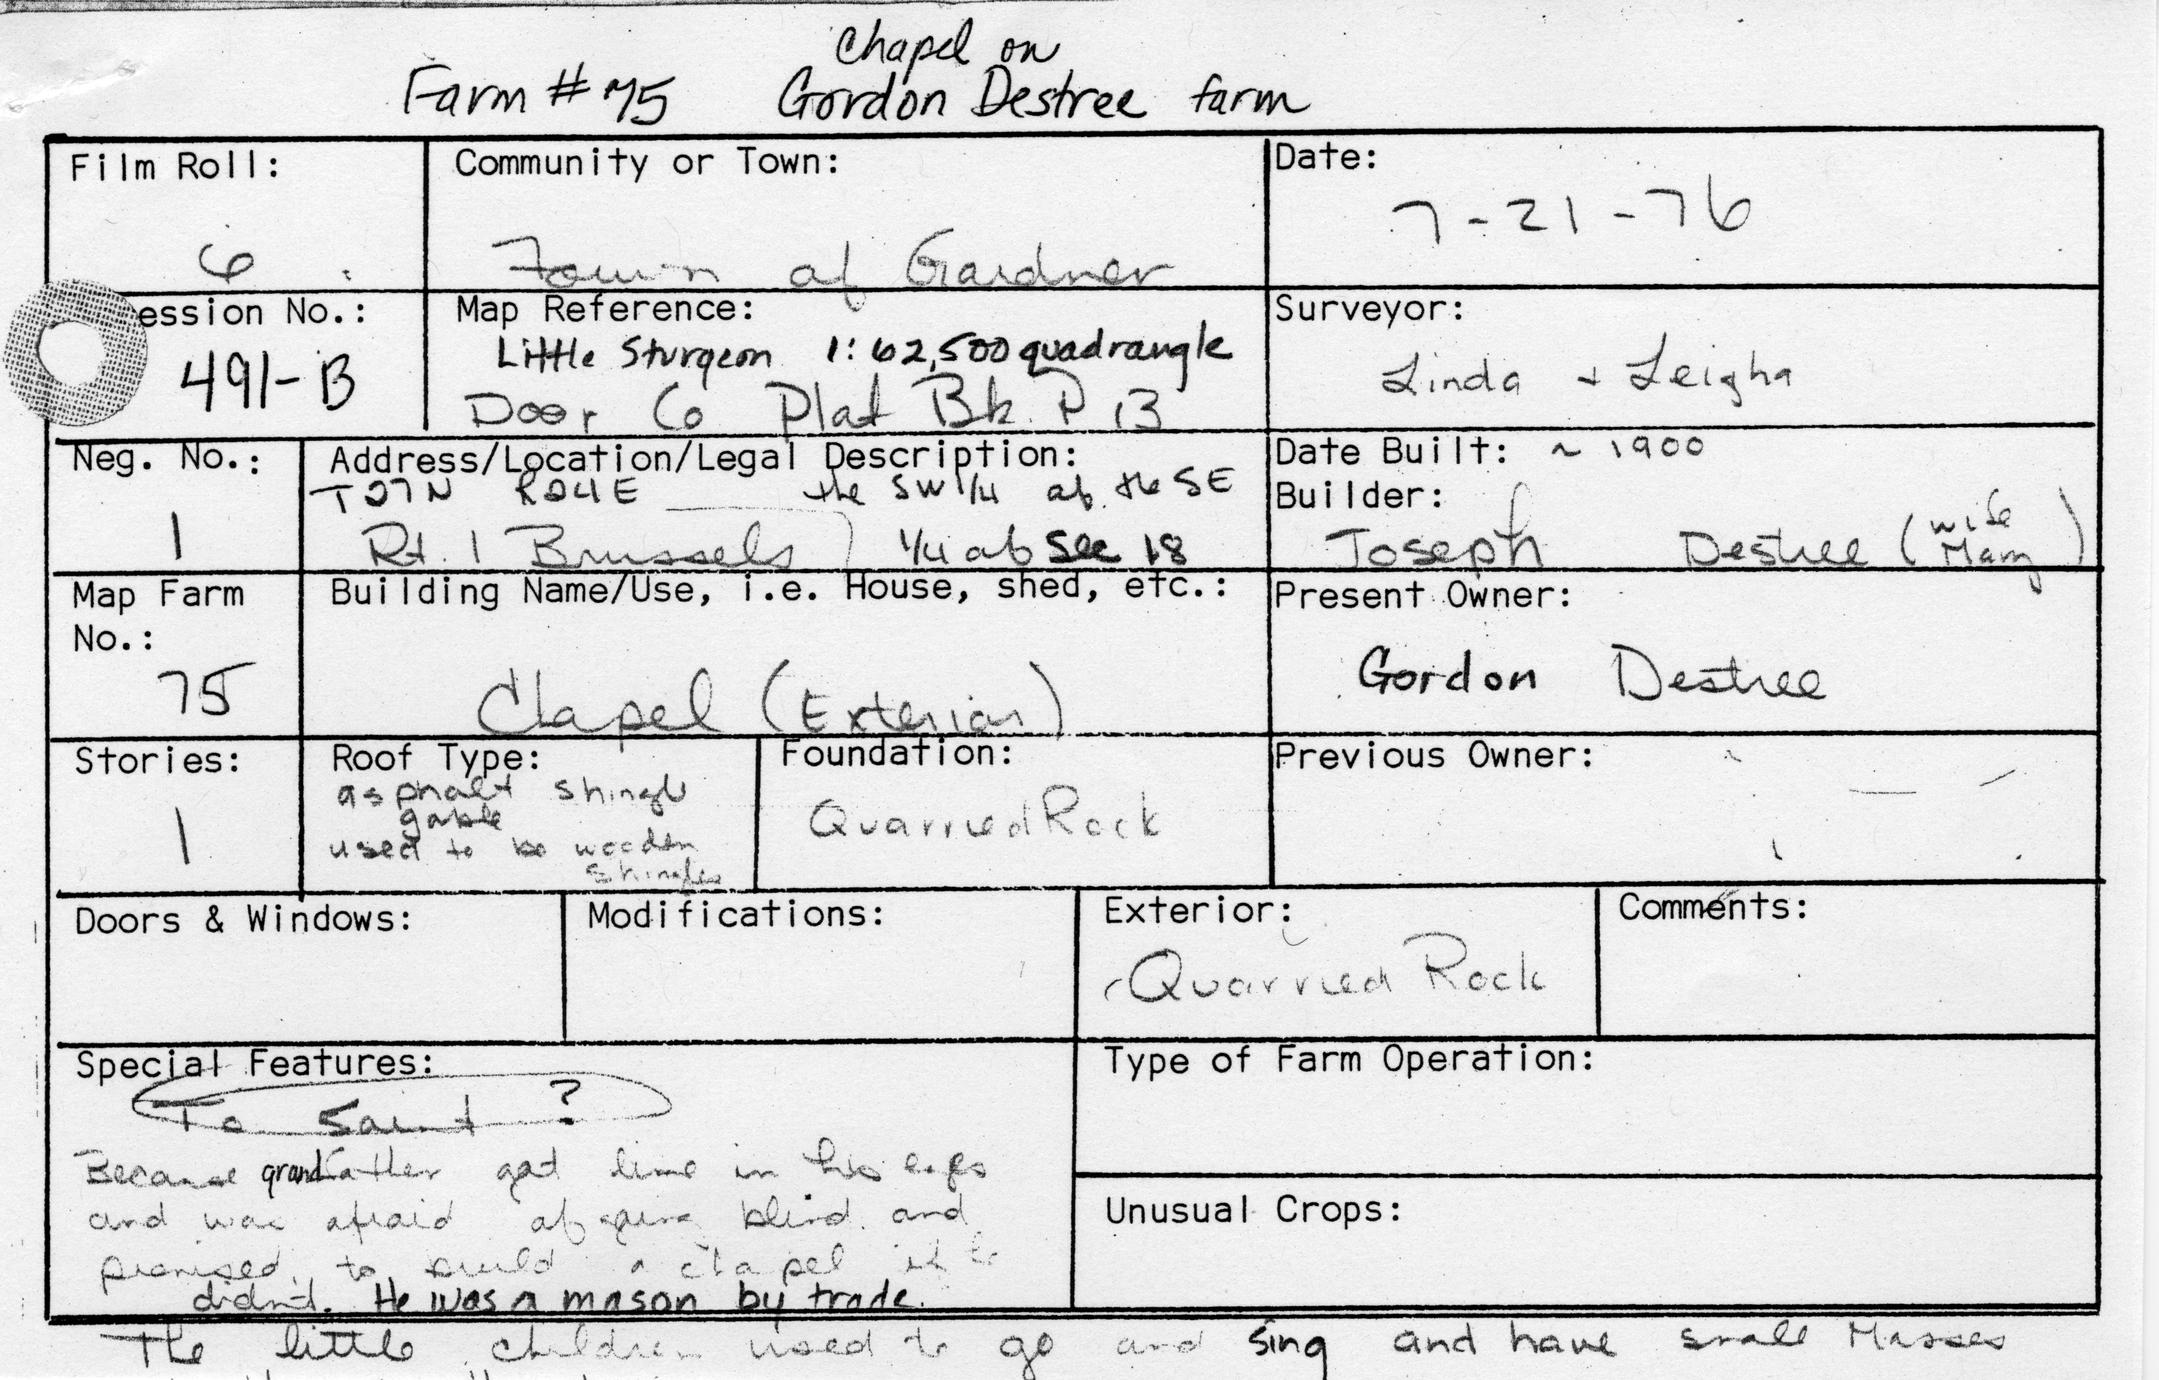 Chapel on
Farm # 75 Gordon Destree farm
Film Roll: Community or Town: Date:
6 Town of Gardner 7-21-76
ession No.: Map Reference: Surveyor:
491-B Little Sturgeon 1:62,500 quadrangle
Door Co Plat Bk. P 13 Linda + Leigha
Neg. No.: Address/Location/Legal Description: Date Built: ~ 1900
T27N R24E the SW 1/4 of the SE Builder:
1 Rt. 1 Brussels 1/4 of Sec 18 Joseph Destree (wife Mary)
Map Farm Building Name/Use, i.e. House, shed, etc.: Present Owner:
No.:
75 Chapel (Exterior) Gordon Destree
Stories: Roof Type: Foundation: Previous Owner:
1 asphalt shingle Quarried Rock —
gable
used to be wooden
shingles
Doors & Windows: Modifications: Exterior: Comments:
Quarried Rock
Special Features: Type of Farm Operation:
To Saint ?
Because grandfather got lime in his eyes
and was afraid of going blind and
promised to build a chapel if he
didn't. He was a mason by trade.
Unusual Crops:
The little children used to go and sing and have small Masses